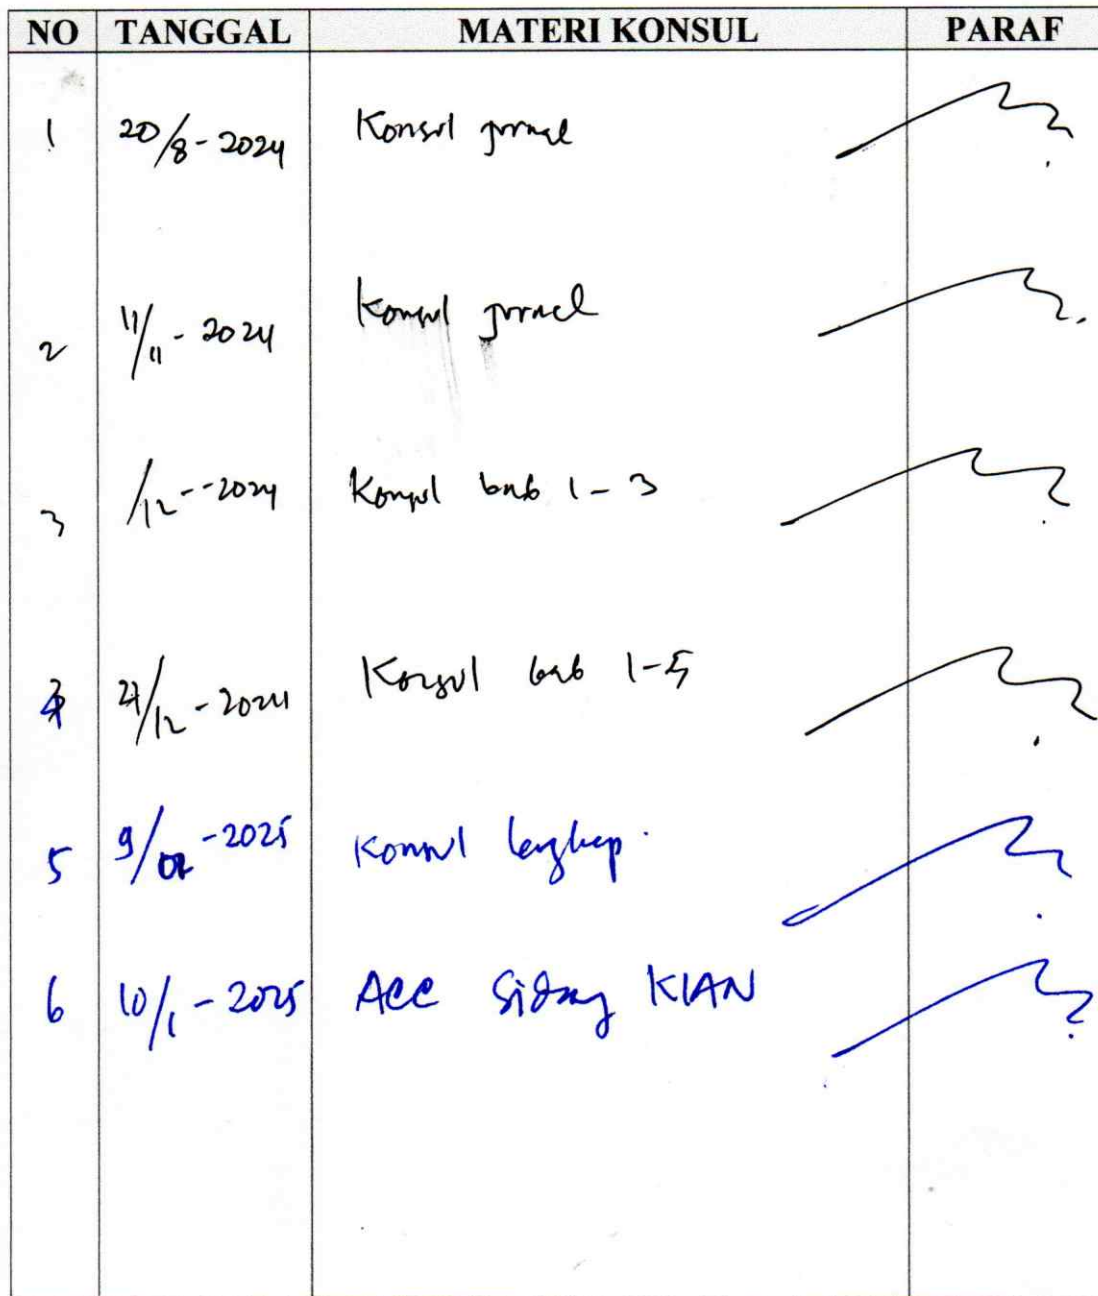 NO TANGGAL MATERI KONSUL PARAF
1 20/8-2024 Konsul jurnal
2 11/11-2024 Konsul jurnal
3 /12--2024 Konsul bab 1-3
4 /12-2024 Konsul bab 1-5
5 9/01-2025 Konsul lengkap.
6 10/1-2025 ACC Sidang KIAN